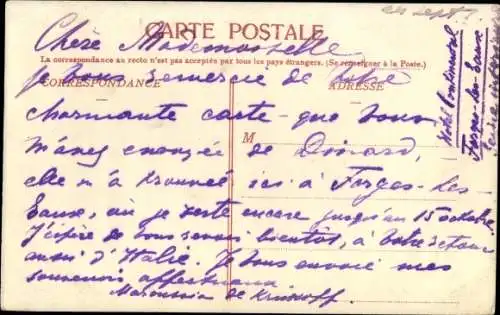 CARTE POSTALE
Chère Mademoiselle
La correspondance au recto n'est pas acceptée par tous les pays étrangers. (Se renseigner à la Poste.)
CORRESPONDANCE
ADRESSE
M
Je vous remercie de votre
charmante carte que vous
m'avez envoyée de Dinard,
elle m'a trouvée ici à Forges-les-
Eaux, où je reste encore jusqu'au 15 octobre
J'espère de vous revoir bientôt, à votre retour
aussi d'Italie. Je vous envoie mes
souvenirs affectueux
Maroussia de
en sept
Hôtel Continental
Forges-les-Eaux
Seine inférieure